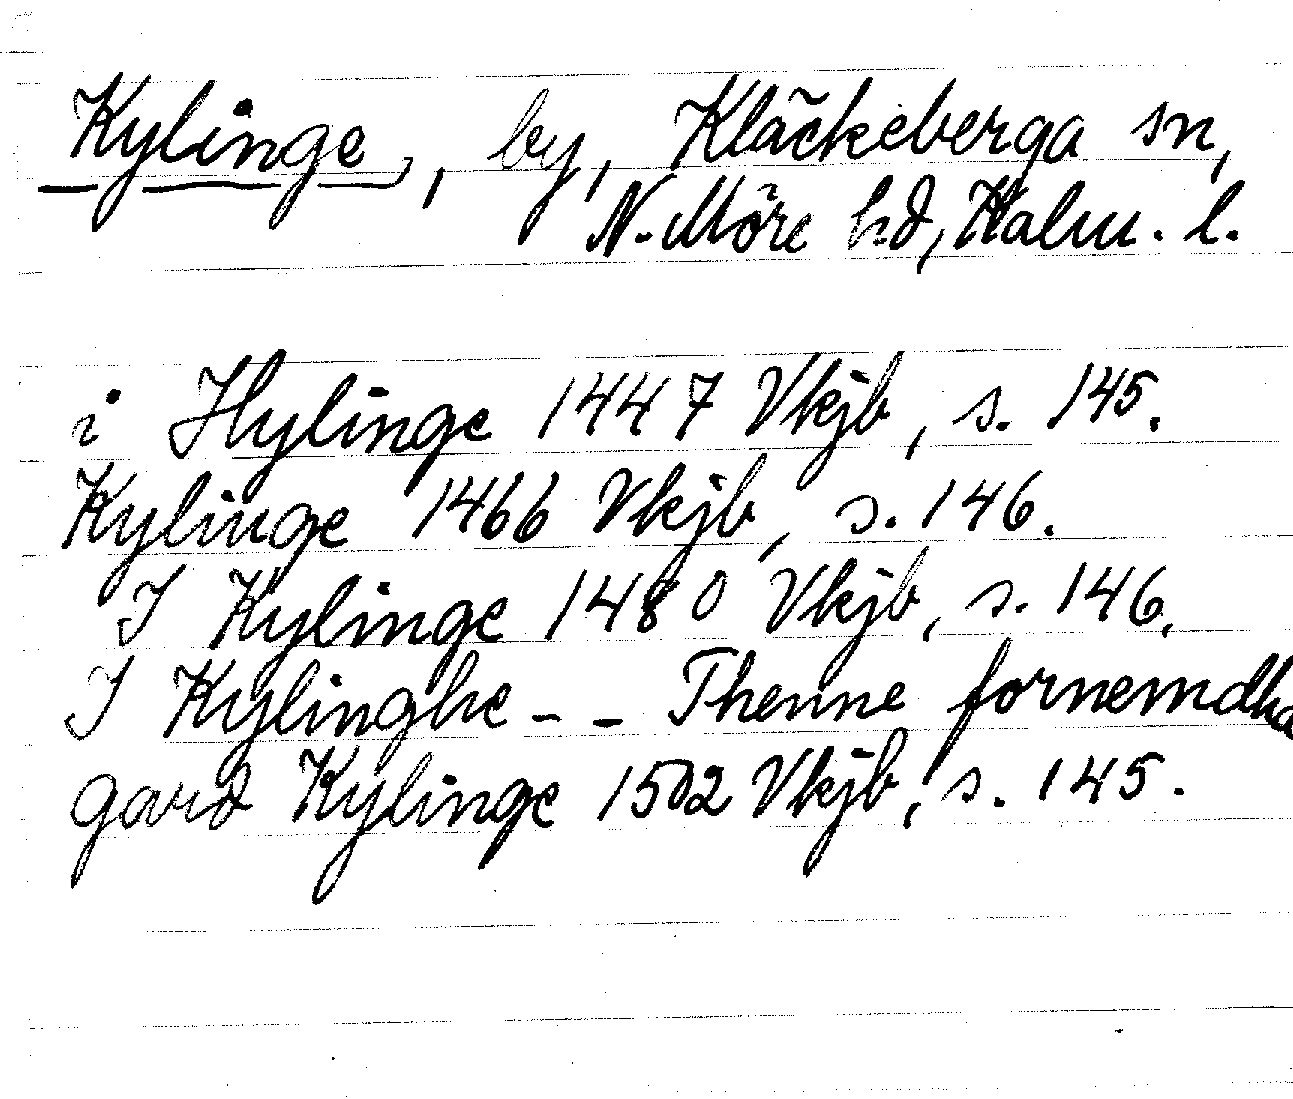 Kylinge, by, Kläckeberga sn,
N. Möre hd, Kalm. l.
i Hylinge 1447 Vkjb, s. 145.
Kylinge 1466 Vkjb, s. 146.
I Kylinge 1480 Vkjb, s. 146.
I Kylinghe - - Thenne fornemdha
gard Kylinge 1502 Vkjb, s. 145.